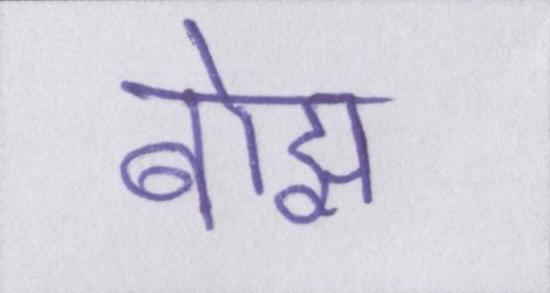 बोझ